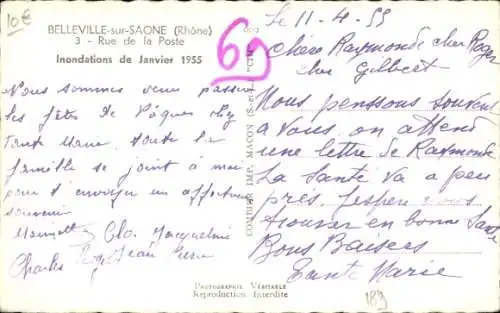 10€
BELLEVILLE-sur-SAONE (Rhône)
3 - Rue de la Poste
Inondations de Janvier 1955
69
Nous sommes venu passer
les fêtes de Pâques chez
Tante Marie. toute la
famille se joint à moi
pour t'envoyer un affectueux
souvenir
Clo. Jacqueline
Charles Jean Pierre
COMBIER IMP. MACON
Le 11-4-55
Chère Raymonde cher Roger
cher Gilbert
Nous penssons souvent
a vous. on attend
une lettre de Raymonde
La santé va a peu
près. J'espere vous
trouver en bonne santé
Bons Baisers
Tante Marie
PHOTOGRAPHIE VÉRITABLE
Reproduction Interdite
183